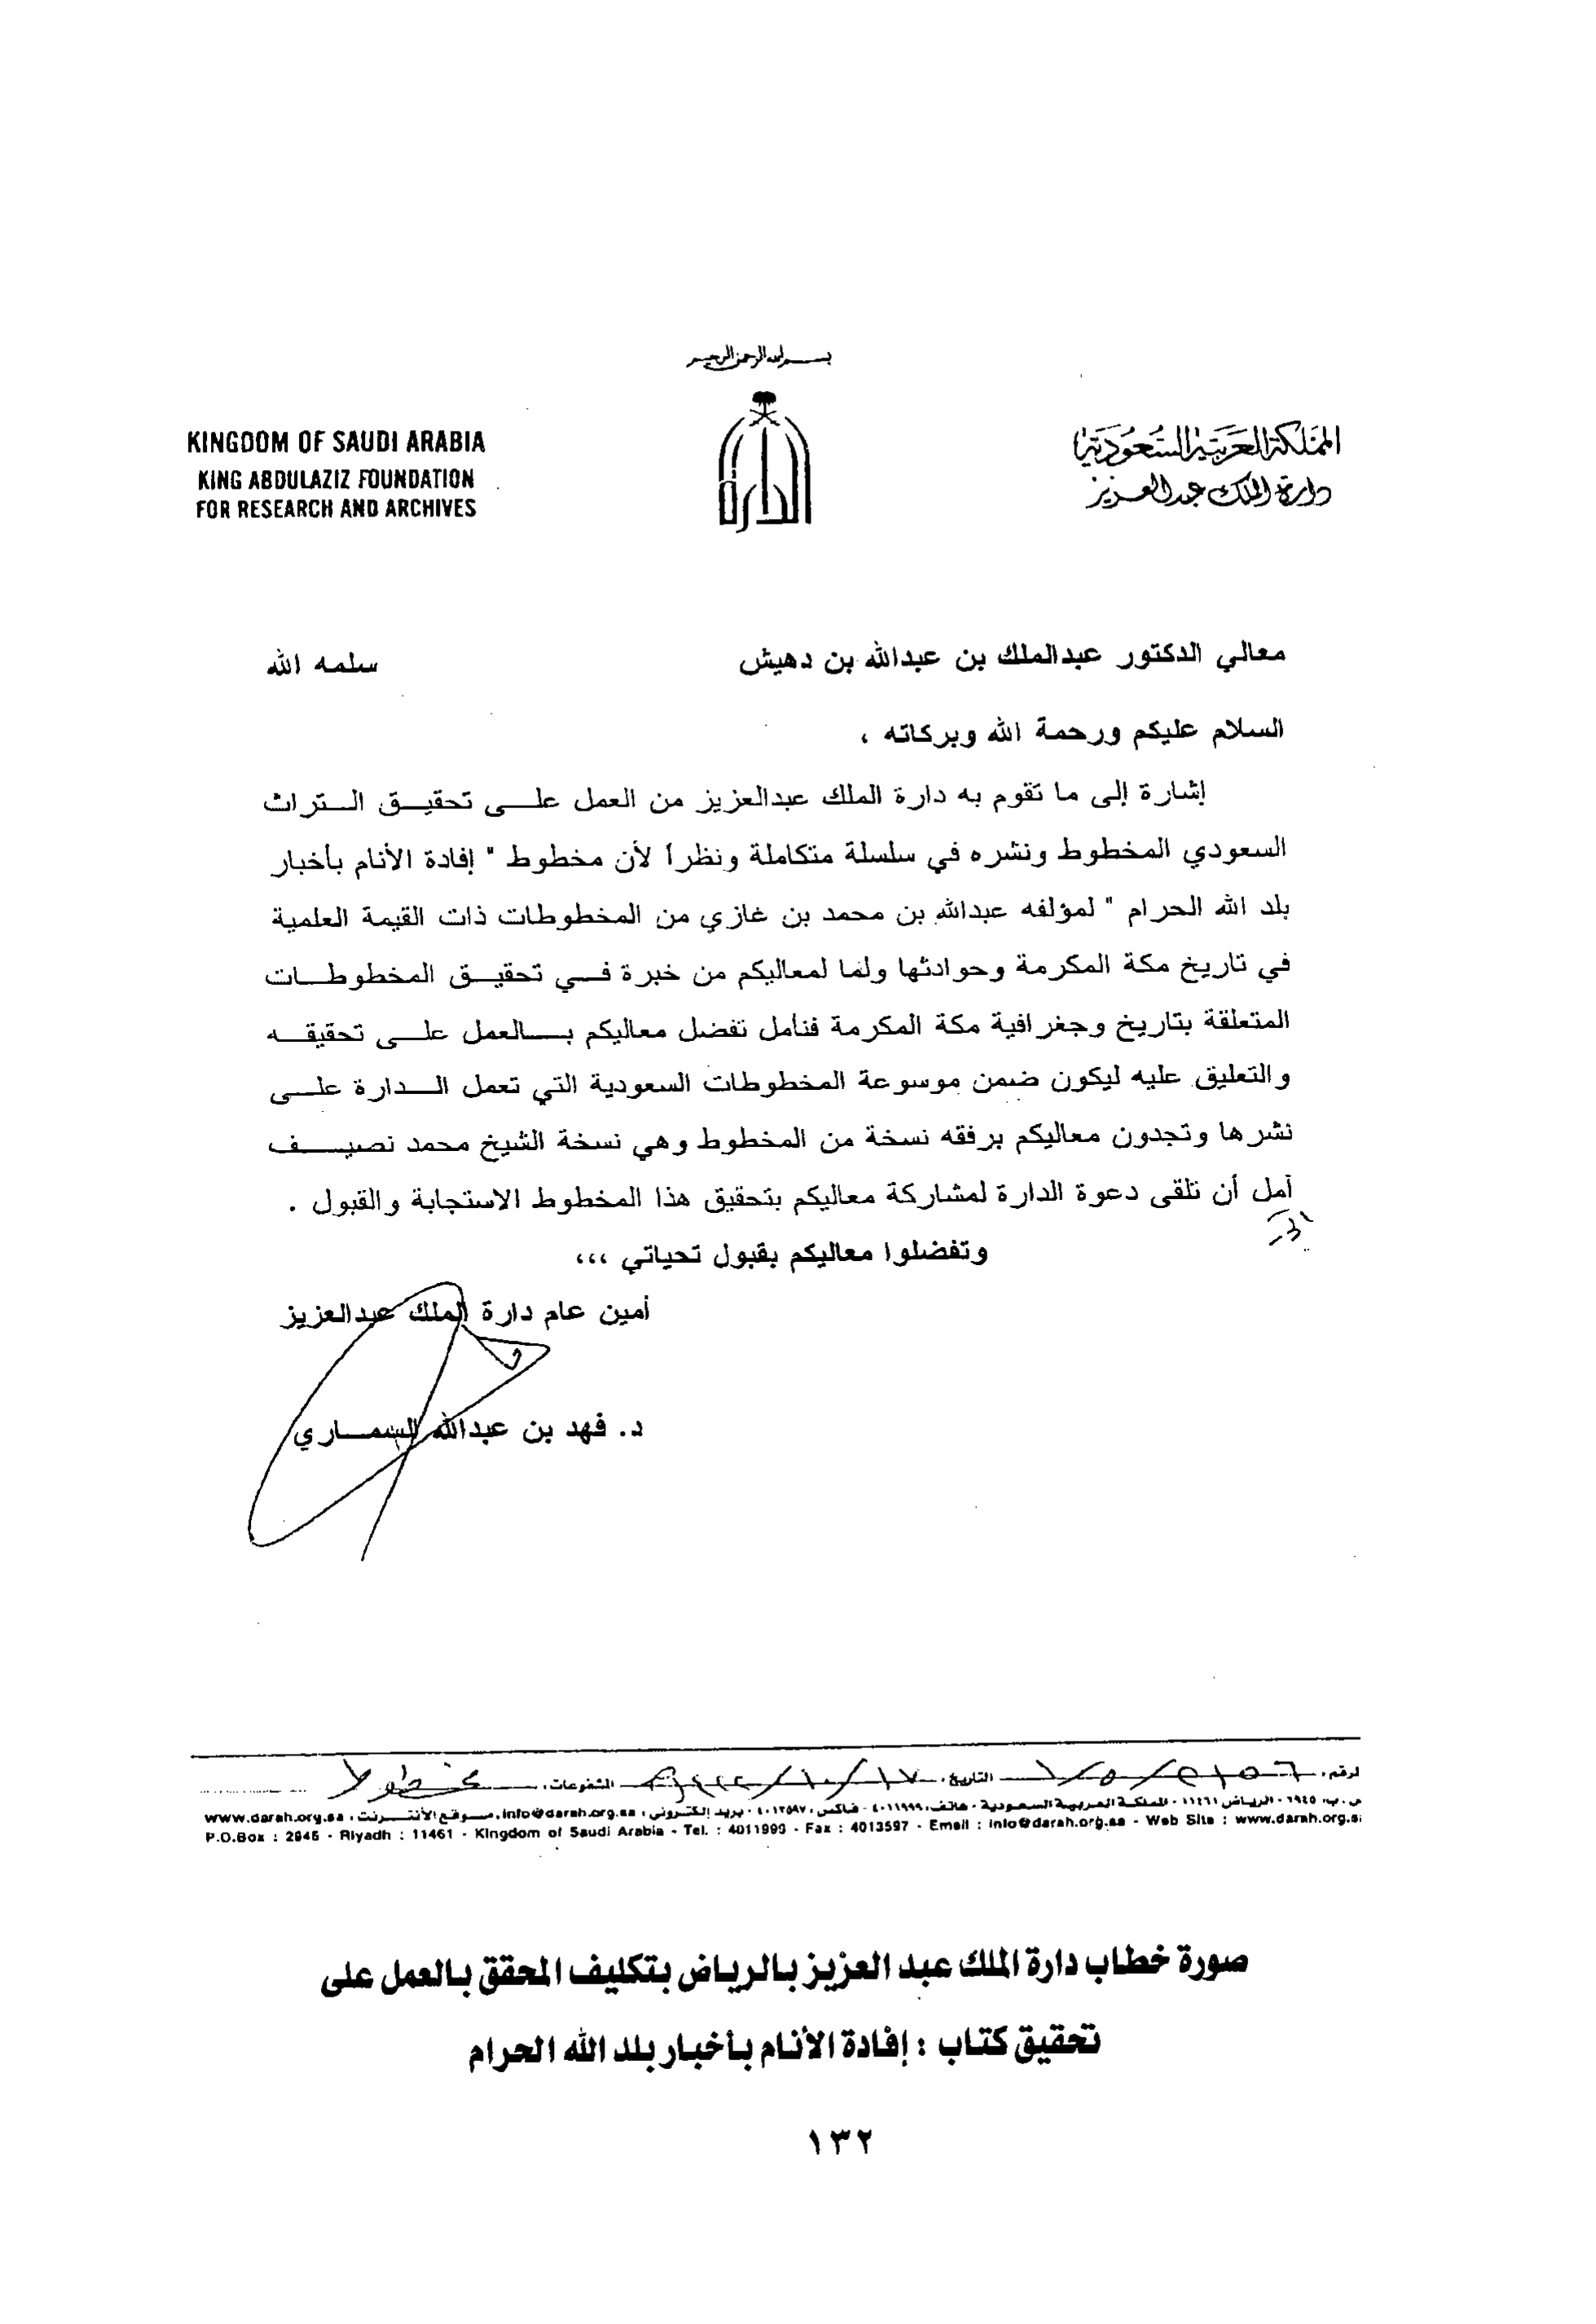 بسم الله الرحمن الرحيم
KINGDOM OF SAUDI ARABIA
KING ABDULAZIZ FOUNDATION
FOR RESEARCH AND ARCHIVES
الدارة
المملكة العربية السعودية
دارة الملك عبدالعزيز
معالي الدكتور عبدالملك بن عبدالله بن دهيش سلمه الله
السلام عليكم ورحمة الله وبركاته ،
إشارة إلى ما تقوم به دارة الملك عبدالعزيز من العمل على تحقيق التراث
السعودي المخطوط ونشره في سلسلة متكاملة ونظراً لأن مخطوط " إفادة الأنام بأخبار
بلد الله الحرام " لمؤلفه عبدالله بن محمد بن غازي من المخطوطات ذات القيمة العلمية
في تاريخ مكة المكرمة وحوادثها ولما لمعاليكم من خبرة في تحقيق المخطوطات
المتعلقة بتاريخ وجغرافية مكة المكرمة فنأمل تفضل معاليكم بالعمل على تحقيقه
والتعليق عليه ليكون ضمن موسوعة المخطوطات السعودية التي تعمل الدارة على
نشرها وتجدون معاليكم برفقه نسخة من المخطوط وهي نسخة الشيخ محمد نصيف
آمل أن تلقى دعوة الدارة لمشاركة معاليكم بتحقيق هذا المخطوط الاستجابة والقبول .
وتفضلوا معاليكم بقبول تحياتي ،،،
أمين عام دارة الملك عبدالعزيز
د. فهد بن عبدالله السماري
لرقم، التاريخ، المشفوعات، مخطوط
ص.ب، ٢٩٤٥ - الرياض ١١٤٦١ - المملكة العربية السعودية - هاتف، ٤٠١١٩٩٩ - فاكس، ٤٠١٣٥٩٧ - بريد إلكتروني، info@darah.org.sa، موقع الأنترنت، www.darah.org.sa
P.O.Box : 2945 - Riyadh : 11461 - Kingdom of Saudi Arabia - Tel. : 4011999 - Fax : 4013597 - Email : info@darah.org.sa - Web Site : www.darah.org.s
صورة خطاب دارة الملك عبد العزيز بالرياض بتكليف المحقق بالعمل على
تحقيق كتاب : إفادة الأنام بأخبار بلد الله الحرام
١٣٢